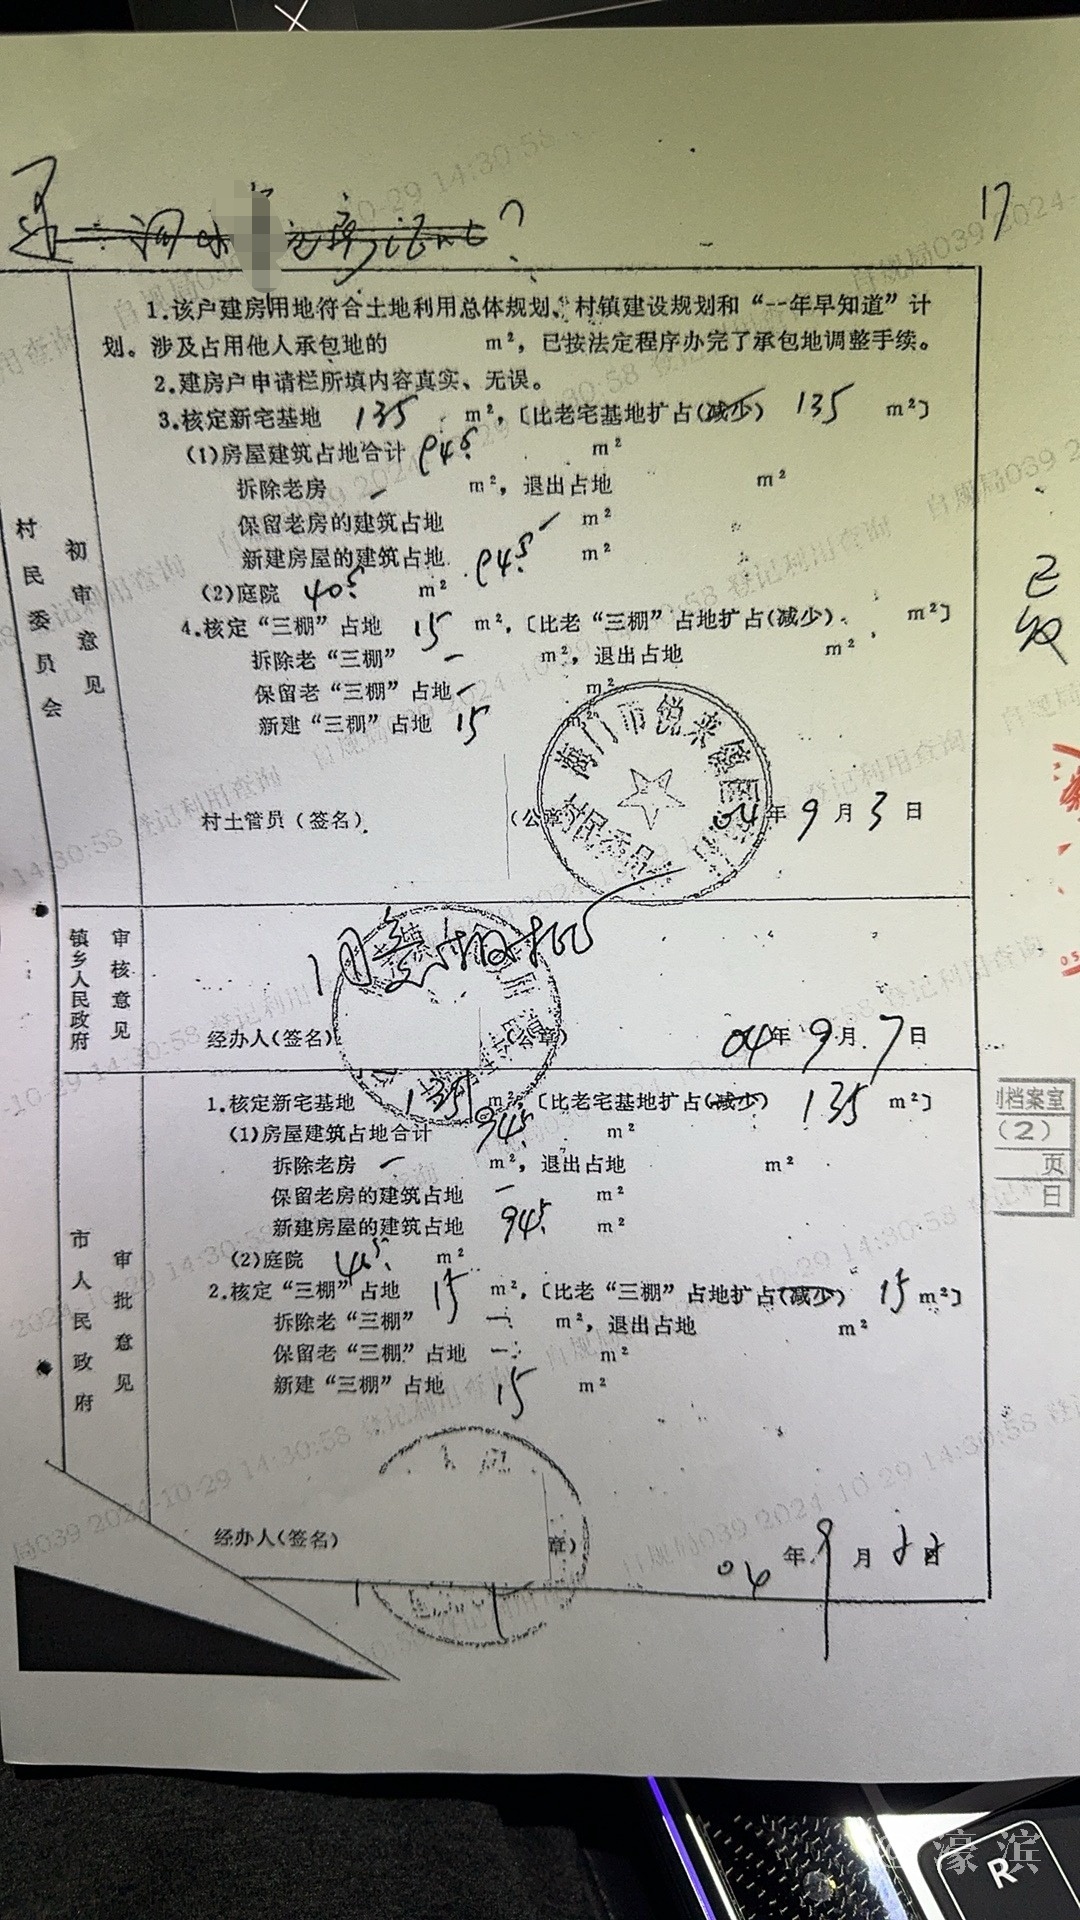 17
1.该户建房用地符合土地利用总体规划、村镇建设规划和“一年早知道”计
划。涉及占用他人承包地的 m²，已按法定程序办完了承包地调整手续。
2.建房户申请栏所填内容真实、无误。
3.核定新宅基地 135 m²，〔比老宅基地扩占(减少) 135 m²〕
(1)房屋建筑占地合计 94.5 m²
拆除老房 — m²，退出占地 m²
保留老房的建筑占地 — m²
新建房屋的建筑占地 94.5 m²
(2)庭院 40.5 m²
4.核定“三棚”占地 15 m²，〔比老“三棚”占地扩占(减少) m²〕
拆除老“三棚” — m²，退出占地 m²
保留老“三棚”占地 — m²
新建“三棚”占地 15 m²
村土管员(签名) (公章) 04年9月3日
村民委员会
初审意见
已
同意报批
经办人(签名) (公章) 04年9月7日
镇乡人民政府
审核意见
1.核定新宅基地 135 m²，〔比老宅基地扩占(减少) 135 m²〕
(1)房屋建筑占地合计 94.5 m²
拆除老房 — m²，退出占地 m²
保留老房的建筑占地 — m²
新建房屋的建筑占地 94.5 m²
(2)庭院 40.5 m²
2.核定“三棚”占地 15 m²，〔比老“三棚”占地扩占(减少) 15 m²〕
拆除老“三棚” — m²，退出占地 m²
保留老“三棚”占地 — m²
新建“三棚”占地 15 m²
经办人(签名) 章) 04年9月 日
市人民政府
审批意见
档案室
(2)
页
日
自规局039 2024-10-29 14:30:58 登记利用查询
濠滨
R